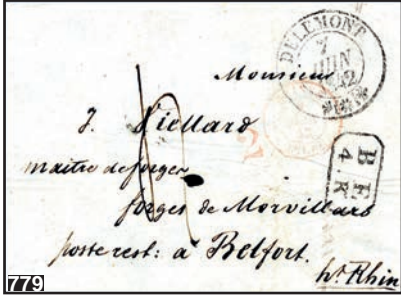 DELEMONT
7
JUIN
42
Monsieur
J. Viellard
2
B F
4. R
maitre de forges
forges de Morvillars
poste rest: à Belfort.
ht Rhin
779